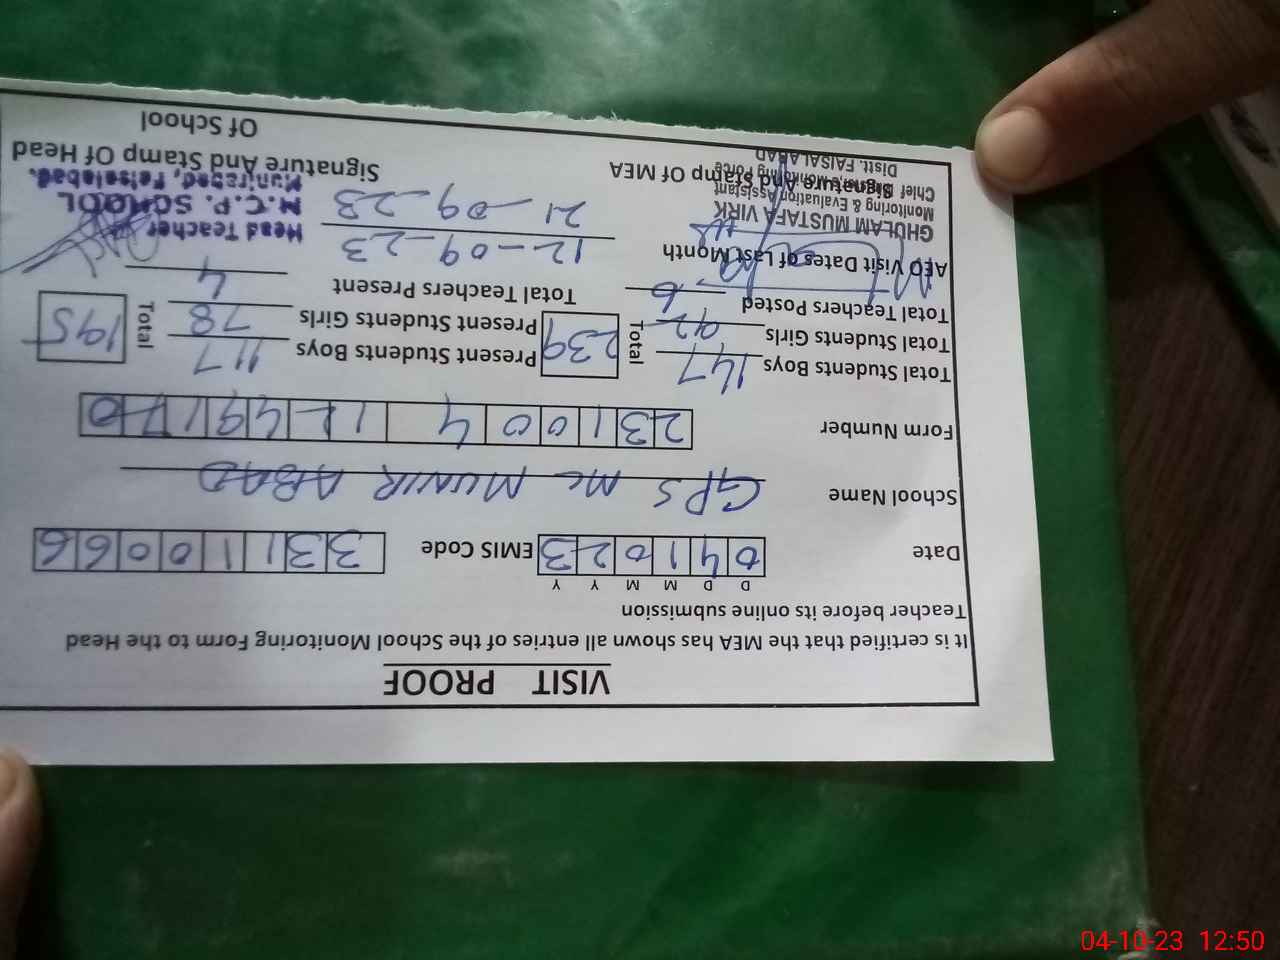 VISIT PROOF
It is certified that the MEA has shown all entries of the School Monitoring Form to the Head
Teacher before its online submission
D D M M Y Y
Date 041023 EMIS Code 33110066
School Name GPS MC MUNIR ABAD
Form Number
Total Students Boys 147 Total 239 Present Students Boys 117 Total 195
Total Students Girls 92 Present Students Girls 78
Total Teachers Posted 6 Total Teachers Present 4
AEO Visit Dates of Last Month 12-09-23
21-09-23
GHULAM MUSTAFA VIRK
Monitoring & Evaluation Assistant
Chief Monitoring Force
Distt. FAISALABAD
Signature And Stamp Of MEA
Head Teacher
M.C.P. SCHOOL
Munirabad, Faisalabad.
Signature And Stamp Of Head
Of School
04-10-23 12:50